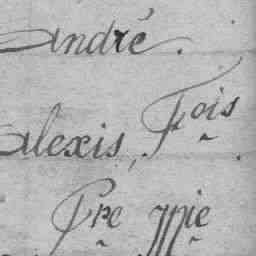 André.
Alexis, Fois.
Pre Mie